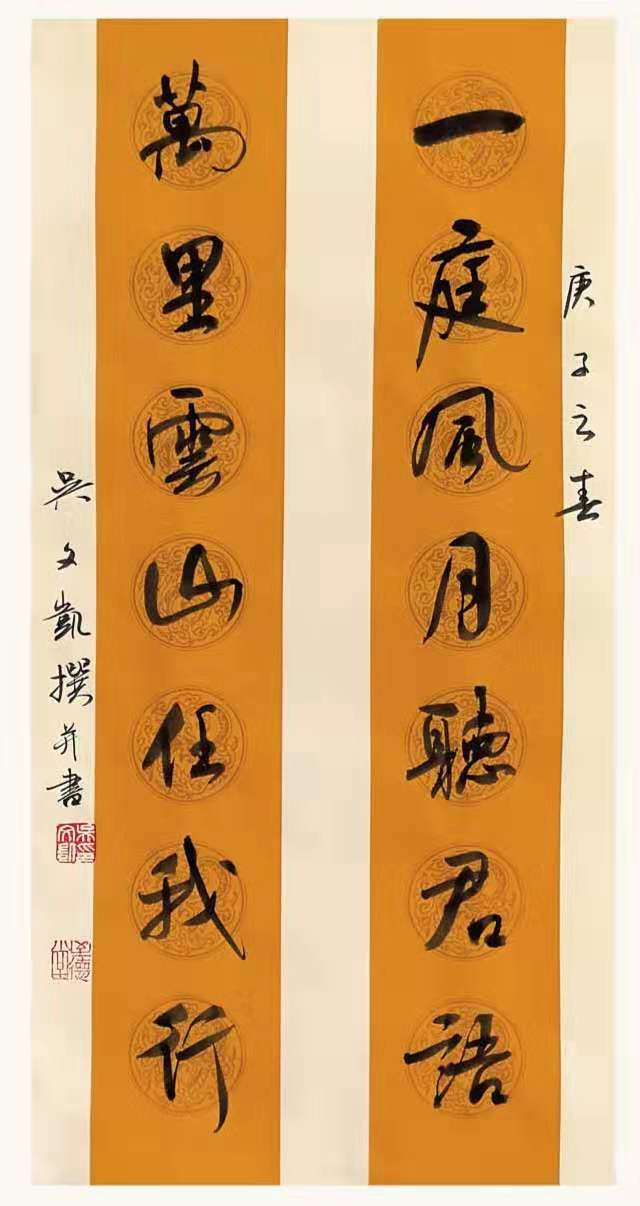 庚子之春
一庭風月聽君語
萬里雲山任我行
吳文凱撰并書